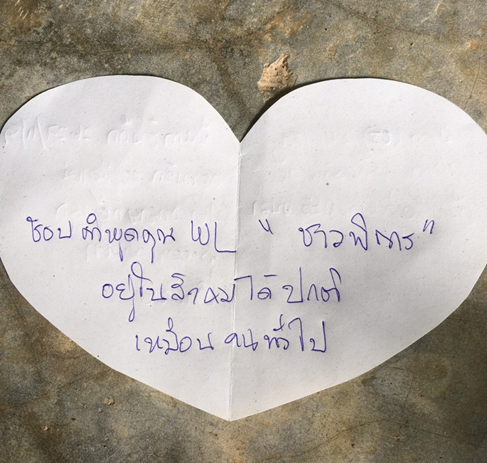 ชอบคำพูดคุณ WL " ชาวพิการ"
อยู่ในสังคมได้ปกติ
เหมือนคนทั่วไป